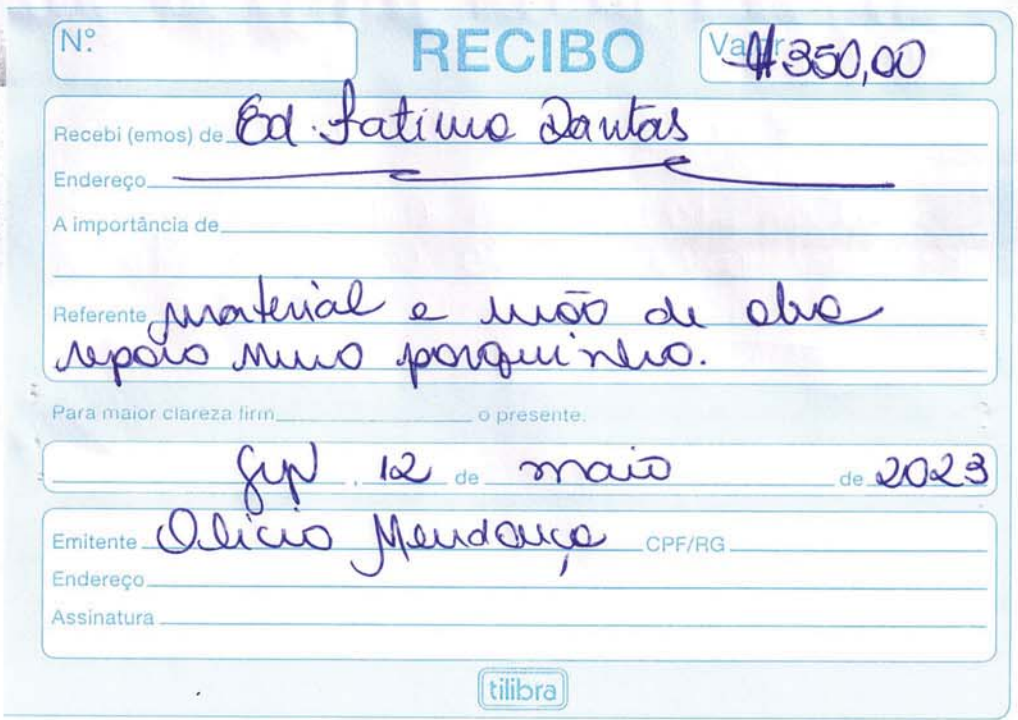 Nº RECIBO Valor # 350,00
Recebi (emos) de Ed. Fatima Dantas
Endereço
A importância de
Referente material e mão de obra
reparo muro porquinho.
Para maior clareza firm o presente.
12 de maio de 2023
Emitente Olicio Mendonça CPF/RG
Endereço
Assinatura
tilibra